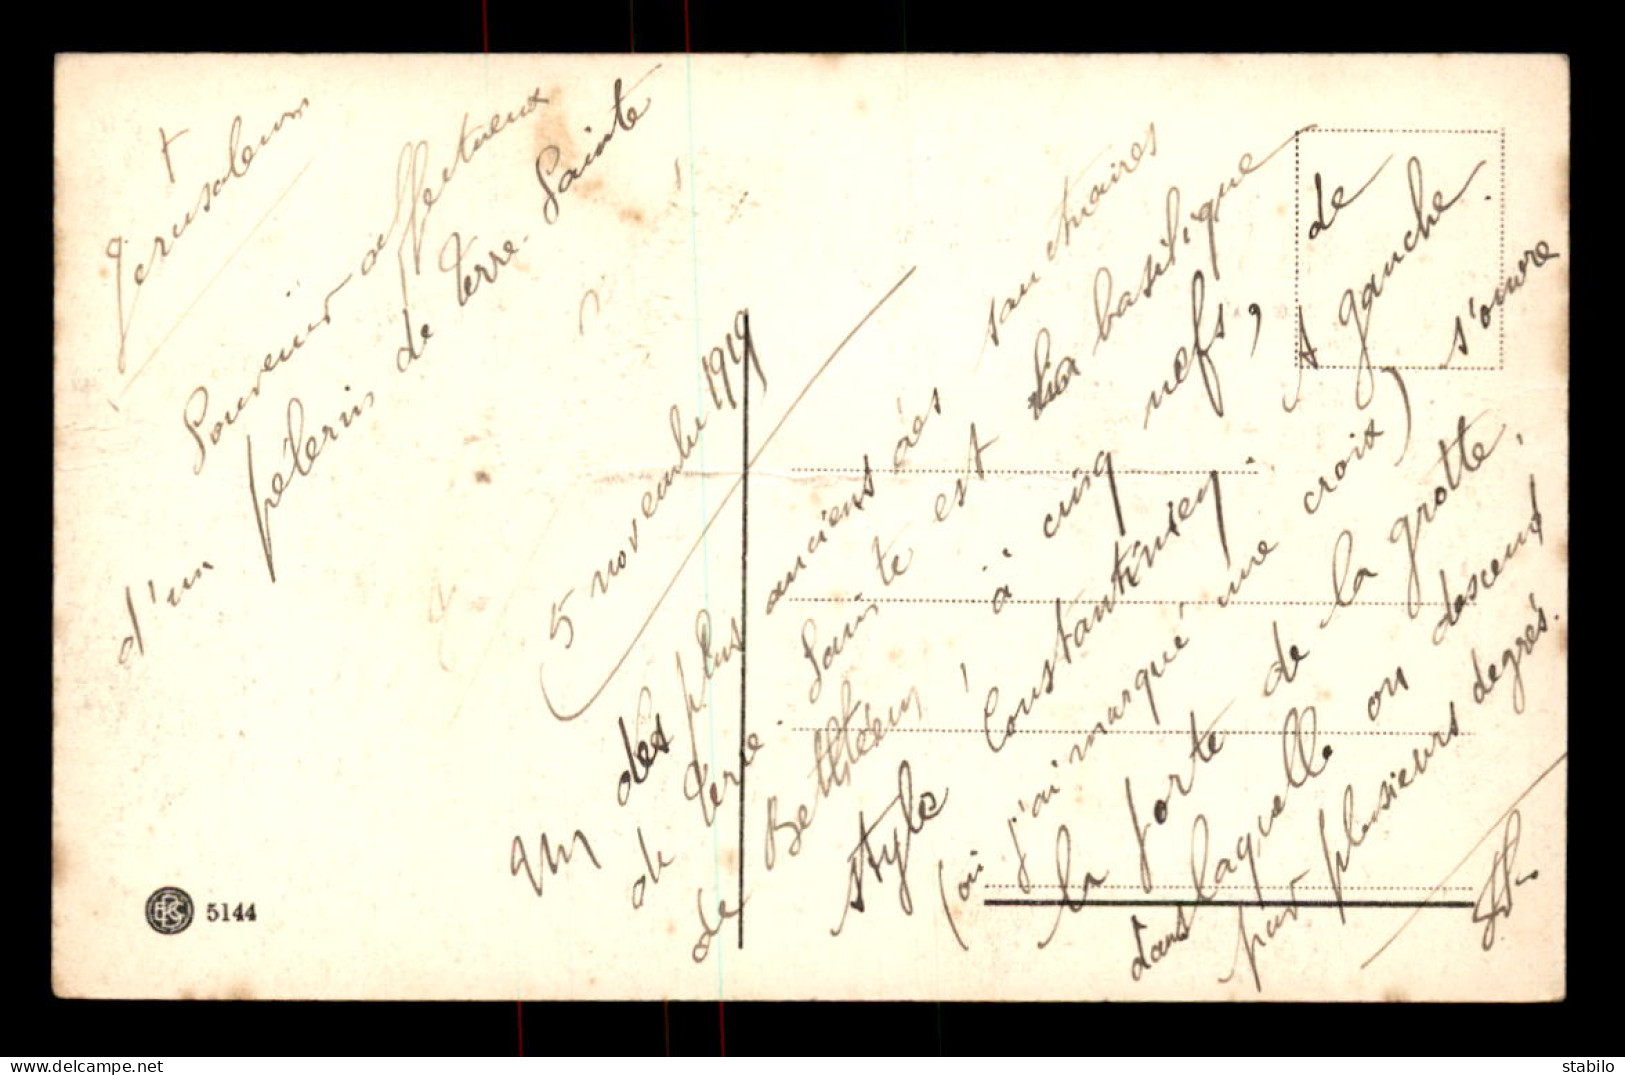 +
Jérusalem
Souvenir affectueux
d'un pèlerin de terre-Sainte
5 novembre 1919
Un des plus anciens des sanctuaires
de terre Sainte est la basilique
de Bethléem à cinq nefs, de
style Constantinien. A gauche
(où j'ai marqué une croix) s'ouvre
la porte de la grotte,
dans laquelle on descend
par plusieurs degrés.
5144
delcampe.net
stabilo